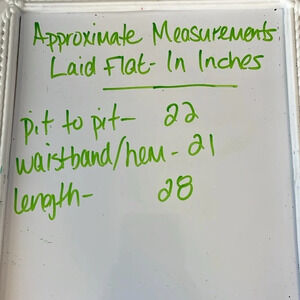 Approximate Measurements
Laid Flat- In Inches
pit to pit- 22
waistband/hem - 21
length- 28